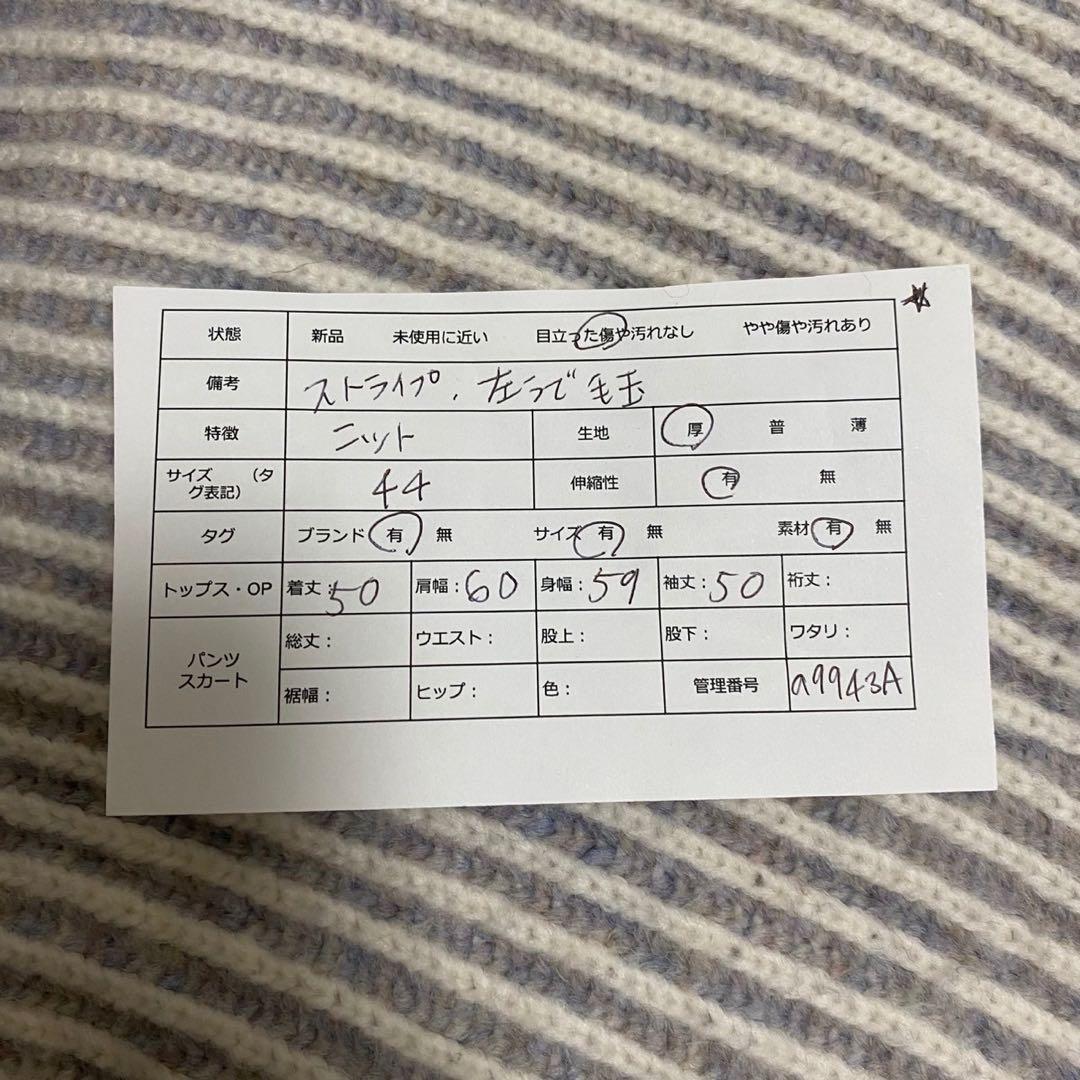 状態 新品 未使用に近い 目立った傷や汚れなし やや傷や汚れあり
備考 ストライプ、左うで毛玉
特徴 ニット 生地 厚 普 薄
サイズ (タグ表記) 44 伸縮性 有 無
タグ ブランド 有 無 サイズ 有 無 素材 有 無
トップス・OP 着丈:50 肩幅:60 身幅:59 袖丈:50 裄丈:
パンツ スカート 総丈: ウエスト: 股上: 股下: ワタリ:
裾幅: ヒップ: 色: 管理番号 a9943A